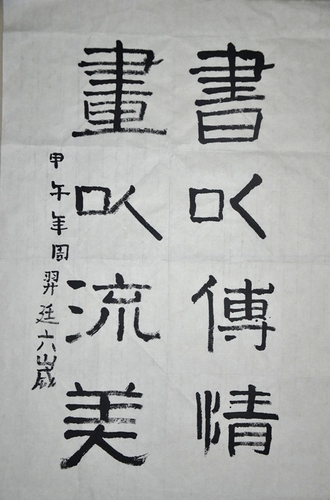 書以傳情
畫以流美
甲午年周羿廷六歲